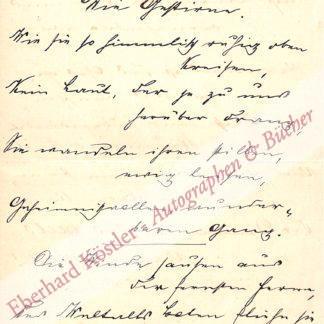 Die Gestirne.
Wie sie so himmlisch ruhig oben
Kreisen,
Kein Laut, der je zu uns
herüber drang,
Sie wandeln ihren stillen,
ewig
Geheimnißvollen wunder-
baren Gang.
Die Winde sausen aus
der fernsten Ferne,
Des Weltalls Boten sie
Eberhard Köstler Autographen & Bücher